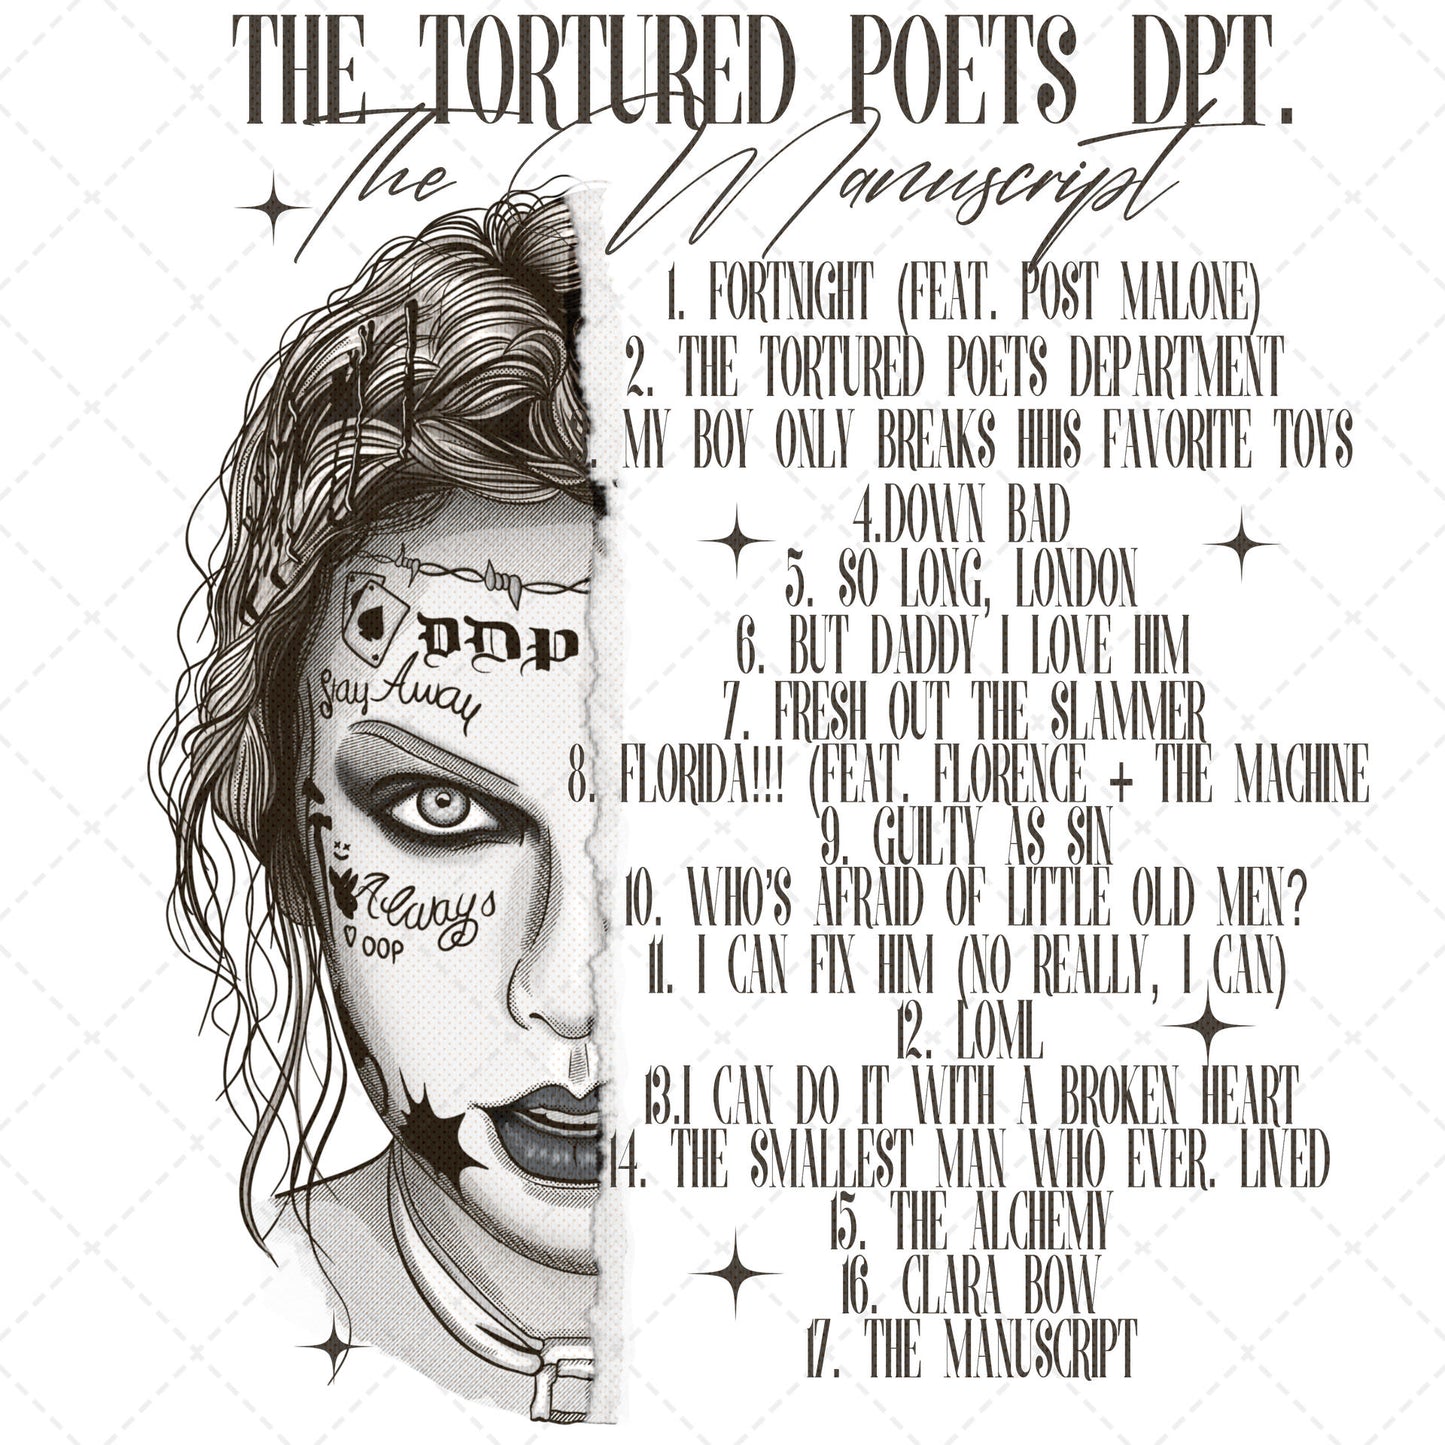 THE TORTURED POETS DPT.
The Manuscript
1. FORTNIGHT (FEAT. POST MALONE)
2. THE TORTURED POETS DEPARTMENT
. MY BOY ONLY BREAKS HHIS FAVORITE TOYS
4.DOWN BAD
5. SO LONG, LONDON
6. BUT DADDY I LOVE HIM
7. FRESH OUT THE SLAMMER
8. FLORIDA!!! (FEAT. FLORENCE + THE MACHINE
9. GUILTY AS SIN
10. WHO'S AFRAID OF LITTLE OLD MEN?
11. I CAN FIX HIM (NO REALLY, I CAN)
12. LOML
13.I CAN DO IT WITH A BROKEN HEART
14. THE SMALLEST MAN WHO EVER. LIVED
15. THE ALCHEMY
16. CLARA BOW
17. THE MANUSCRIPT
DDP
Stay Away
Always
OOP